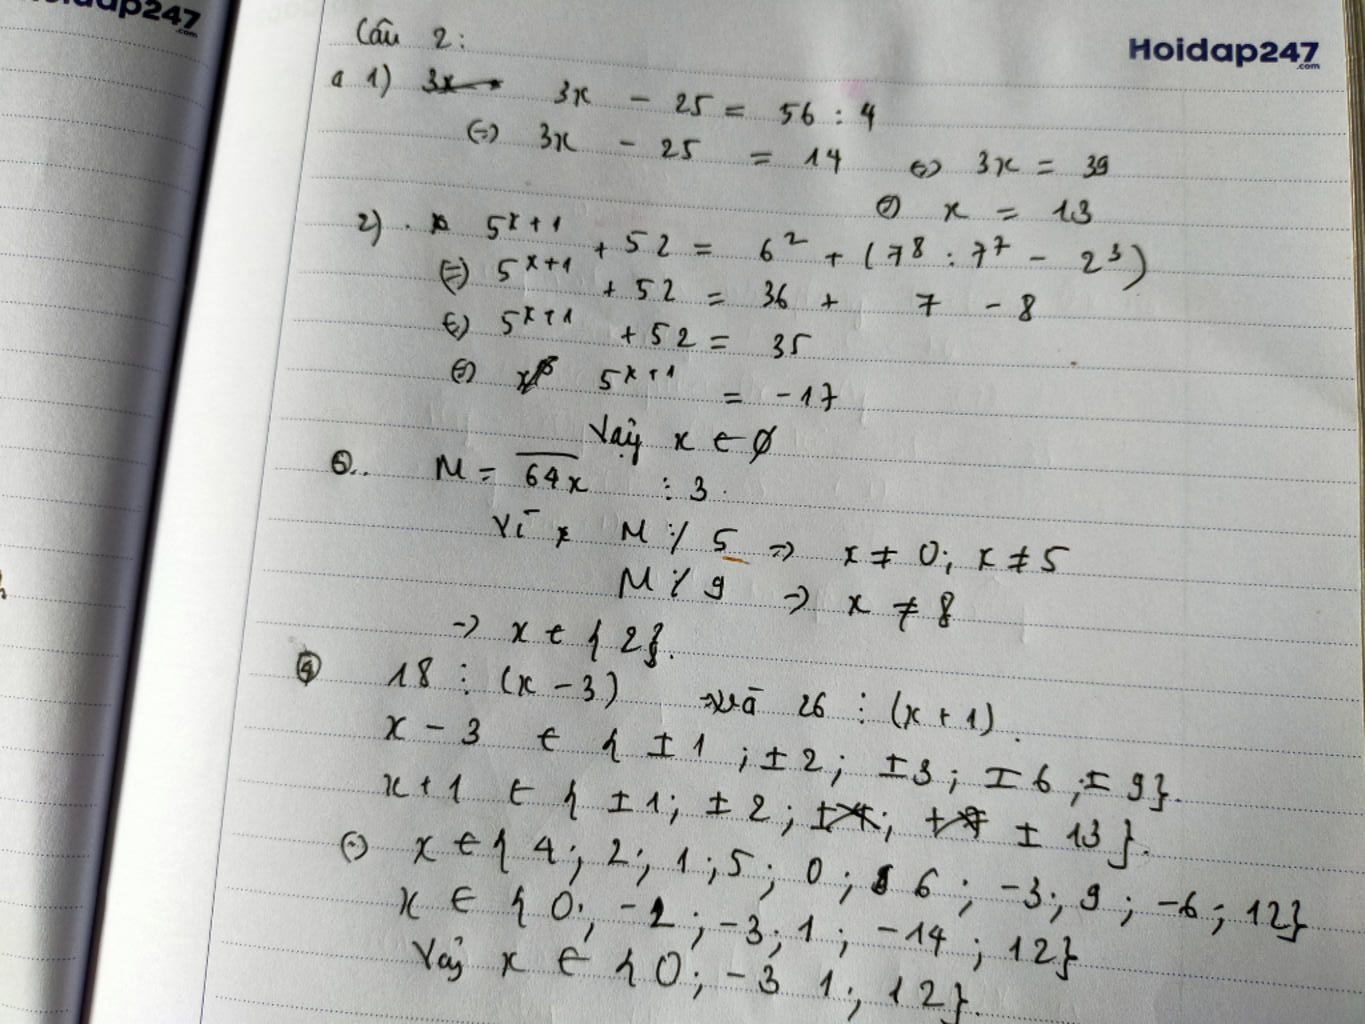 Hoidap247
.com
Hoidap247
.com
Câu 2:
a 1) 3x - 25 = 56 : 4
(=) 3x - 25 = 14 (=) 3x = 39
(=) x = 13
2) 5^{x+1} + 52 = 6^2 + (7^8 : 7^7 - 2^3)
(=) 5^{x+1} + 52 = 36 + 7 - 8
(=) 5^{x+1} + 52 = 35
(=) 5^{x+1} = -17
Vậy x ∈ ∅
M = \overline{64x} ⋮ 3
Vì M ⋮̸ 5 => x ≠ 0; x ≠ 5
M ⋮̸ 9 => x ≠ 8
-> x ∈ {2}.
④ 18 ⋮ (x - 3) và 26 ⋮ (x + 1).
x - 3 ∈ {±1; ±2; ±3; ±6; ±9}.
x + 1 ∈ {±1; ±2; ±13}.
(=) x ∈ {4; 2; 1; 5; 0; 6; -3; 9; -6; 12}
x ∈ {0; -2; -3; 1; -14; 12}
Vậy x ∈ {0; -3 1; 12}.